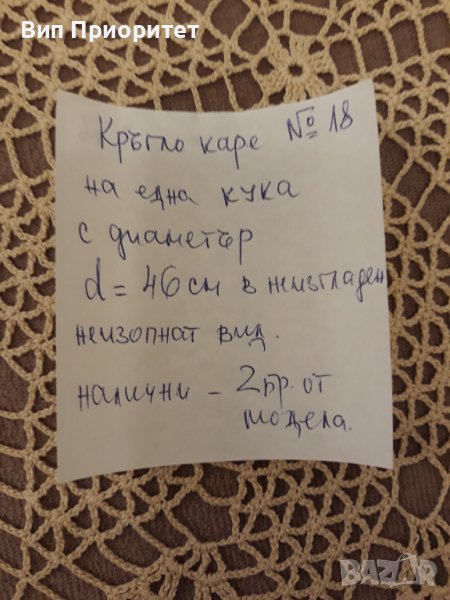 Вип Приоритет
Кръгло каре № 18
на една кука
с диаметър
d = 46 см в неизгладен
неизопнат вид.
налични - 2бр. от
модела.
BAZAR